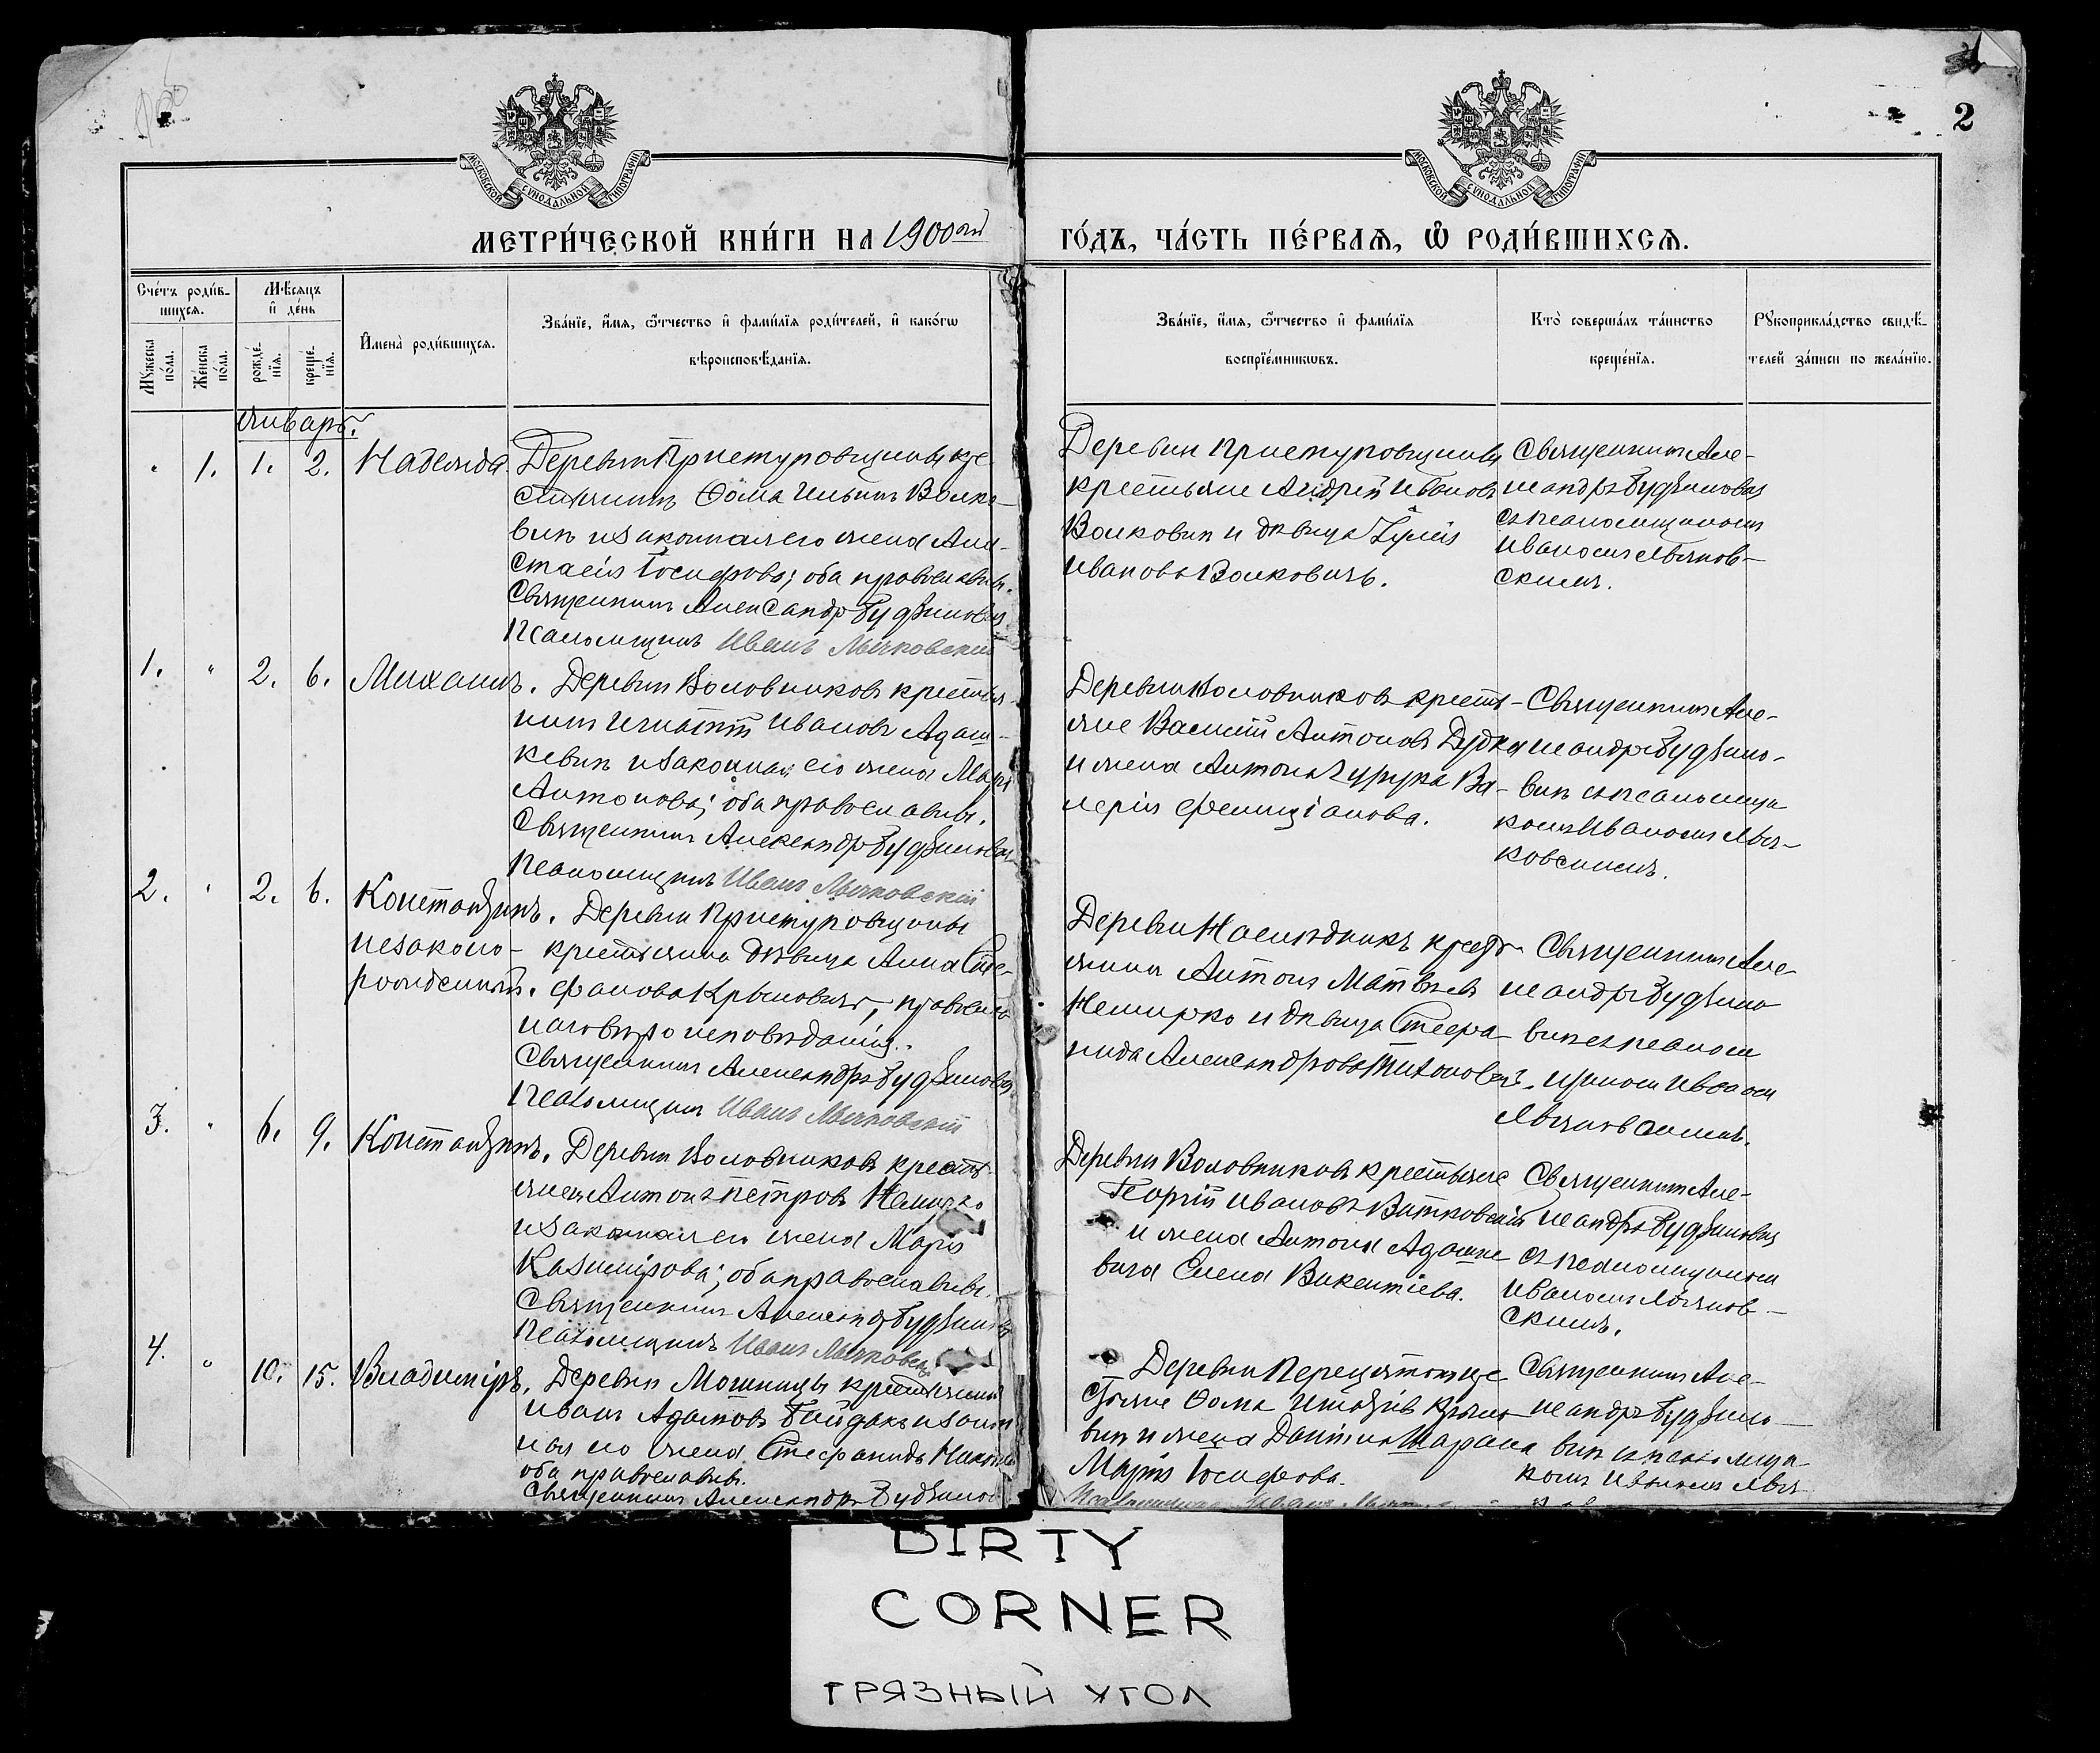 2
МОСКОВСКОЙ СѴНОДАЛЬНОЙ ТИПОГРАФІИ
МОСКОВСКОЙ СѴНОДАЛЬНОЙ ТИПОГРАФІИ
МЕТРИ́ЧЕСКОЙ КНИ́ГИ НА 1900ый
ГО́ДЪ, ЧА́СТЬ ПЕ́РВАѦ, Ѽ РОДИ́ВШИХСѦ.
Сче́тъ роди́в-
шихсѧ.
Мꙋ́жеска по́ла.
Же́нска по́ла.
Мѣ́сѧцъ
и҆ де́нь
рожде́-
нїѧ.
креще́-
нїѧ.
И҆мена̀ роди́вшихсѧ.
Зва́нїе, и҆́мѧ, ѻ҆́тчество и҆ фами́лїѧ роди́телей, и҆ како́гѡ
вѣроисповѣ́данїѧ.
Зва́нїе, и҆́мѧ, ѻ҆́тчество и҆ фами́лїѧ
воспрїе́мникѡвъ.
Кто̀ соверша́лъ та́инство
креще́нїѧ.
Рꙋкоприкла́дство свидѣ́-
телей за́писи по жела́нїю.
Январь.
1. 1. 2. Надежда. Деревни Приступовщины кре-
стьянинъ Ѳома Ильинъ Волко-
вичъ и законная его жена Ана-
стасія Іосифова; оба православны.
Священникъ Александръ Будзиловичъ
Псаломщикъ Иванъ Мячковскій
Деревни Приступовщины
крестьяне Андрей Ивановъ
Волковичъ и дѣвица Юлія
Иванова Волковичъ.
Священникъ Але-
ксандръ Будзиловичъ
съ псаломщикомъ
Иваномъ Мячков-
скимъ.
1. 2. 6. Михаилъ. Деревни Воловниковъ крестья-
нинъ Игнатій Ивановъ Адаш-
кевичъ и законная его жена Марія
Антонова; оба православны.
Священникъ Александръ Будзиловичъ
Псаломщикъ Иванъ Мячковскій
Деревни Воловниковъ кресть-
яне Василій Антоновъ Дудка
и жена Антона Ва-
лерія Фелиціанова.
Священникъ Але-
ксандръ Будзило-
вичъ съ псаломщи-
комъ Иваномъ Мяч-
ковскимъ.
2. 2. 6. Константинъ. Деревни Приступовщины
незаконо-
рожденный.
крестьянка дѣвица Анна Сте-
фанова Крыловичъ, православ-
наго вѣроисповѣданія.
Священникъ Александръ Будзиловичъ
Псаломщикъ Иванъ Мячковскій
Деревни Наслѣдники кресть-
янинъ Антонъ Матвѣевъ
Немирко и дѣвица Стефа-
нида Александрова Тихоновичъ.
Священникъ Але-
ксандръ Будзило-
вичъ съ псалом-
щикомъ Иваномъ
Мячковскимъ.
3. 6. 9. Константинъ. Деревни Воловниковъ кресть-
янинъ Антонъ Петровъ Немирко
и законная его жена Марія
Казимірова; оба православны.
Священникъ Александръ Будзиловичъ
Псаломщикъ Иванъ Мячковскій
Деревни Воловниковъ крестьяне
Георгій Ивановъ Витковскій
и жена Антона Адашке-
вича Елена Викентіева.
Священникъ Але-
ксандръ Будзиловичъ
съ псаломщикомъ
Иваномъ Мячков-
скимъ.
4. 10. 15. Владиміръ. Деревни Мошницы крестьянинъ
Иванъ Адамовъ Гайдакъ и закон-
ная его жена Стефанида
оба православны.
Священникъ Александръ Будзиловичъ
Деревни кре-
стьяне Ѳома
вичъ и жена Даніила Шарана
Марія Іосифова.
Священникъ Але-
ксандръ Будзило-
вичъ съ псаломщи-
комъ Иваномъ Мяч-
DIRTY
CORNER
ГРЯЗНЫЙ УГОЛ